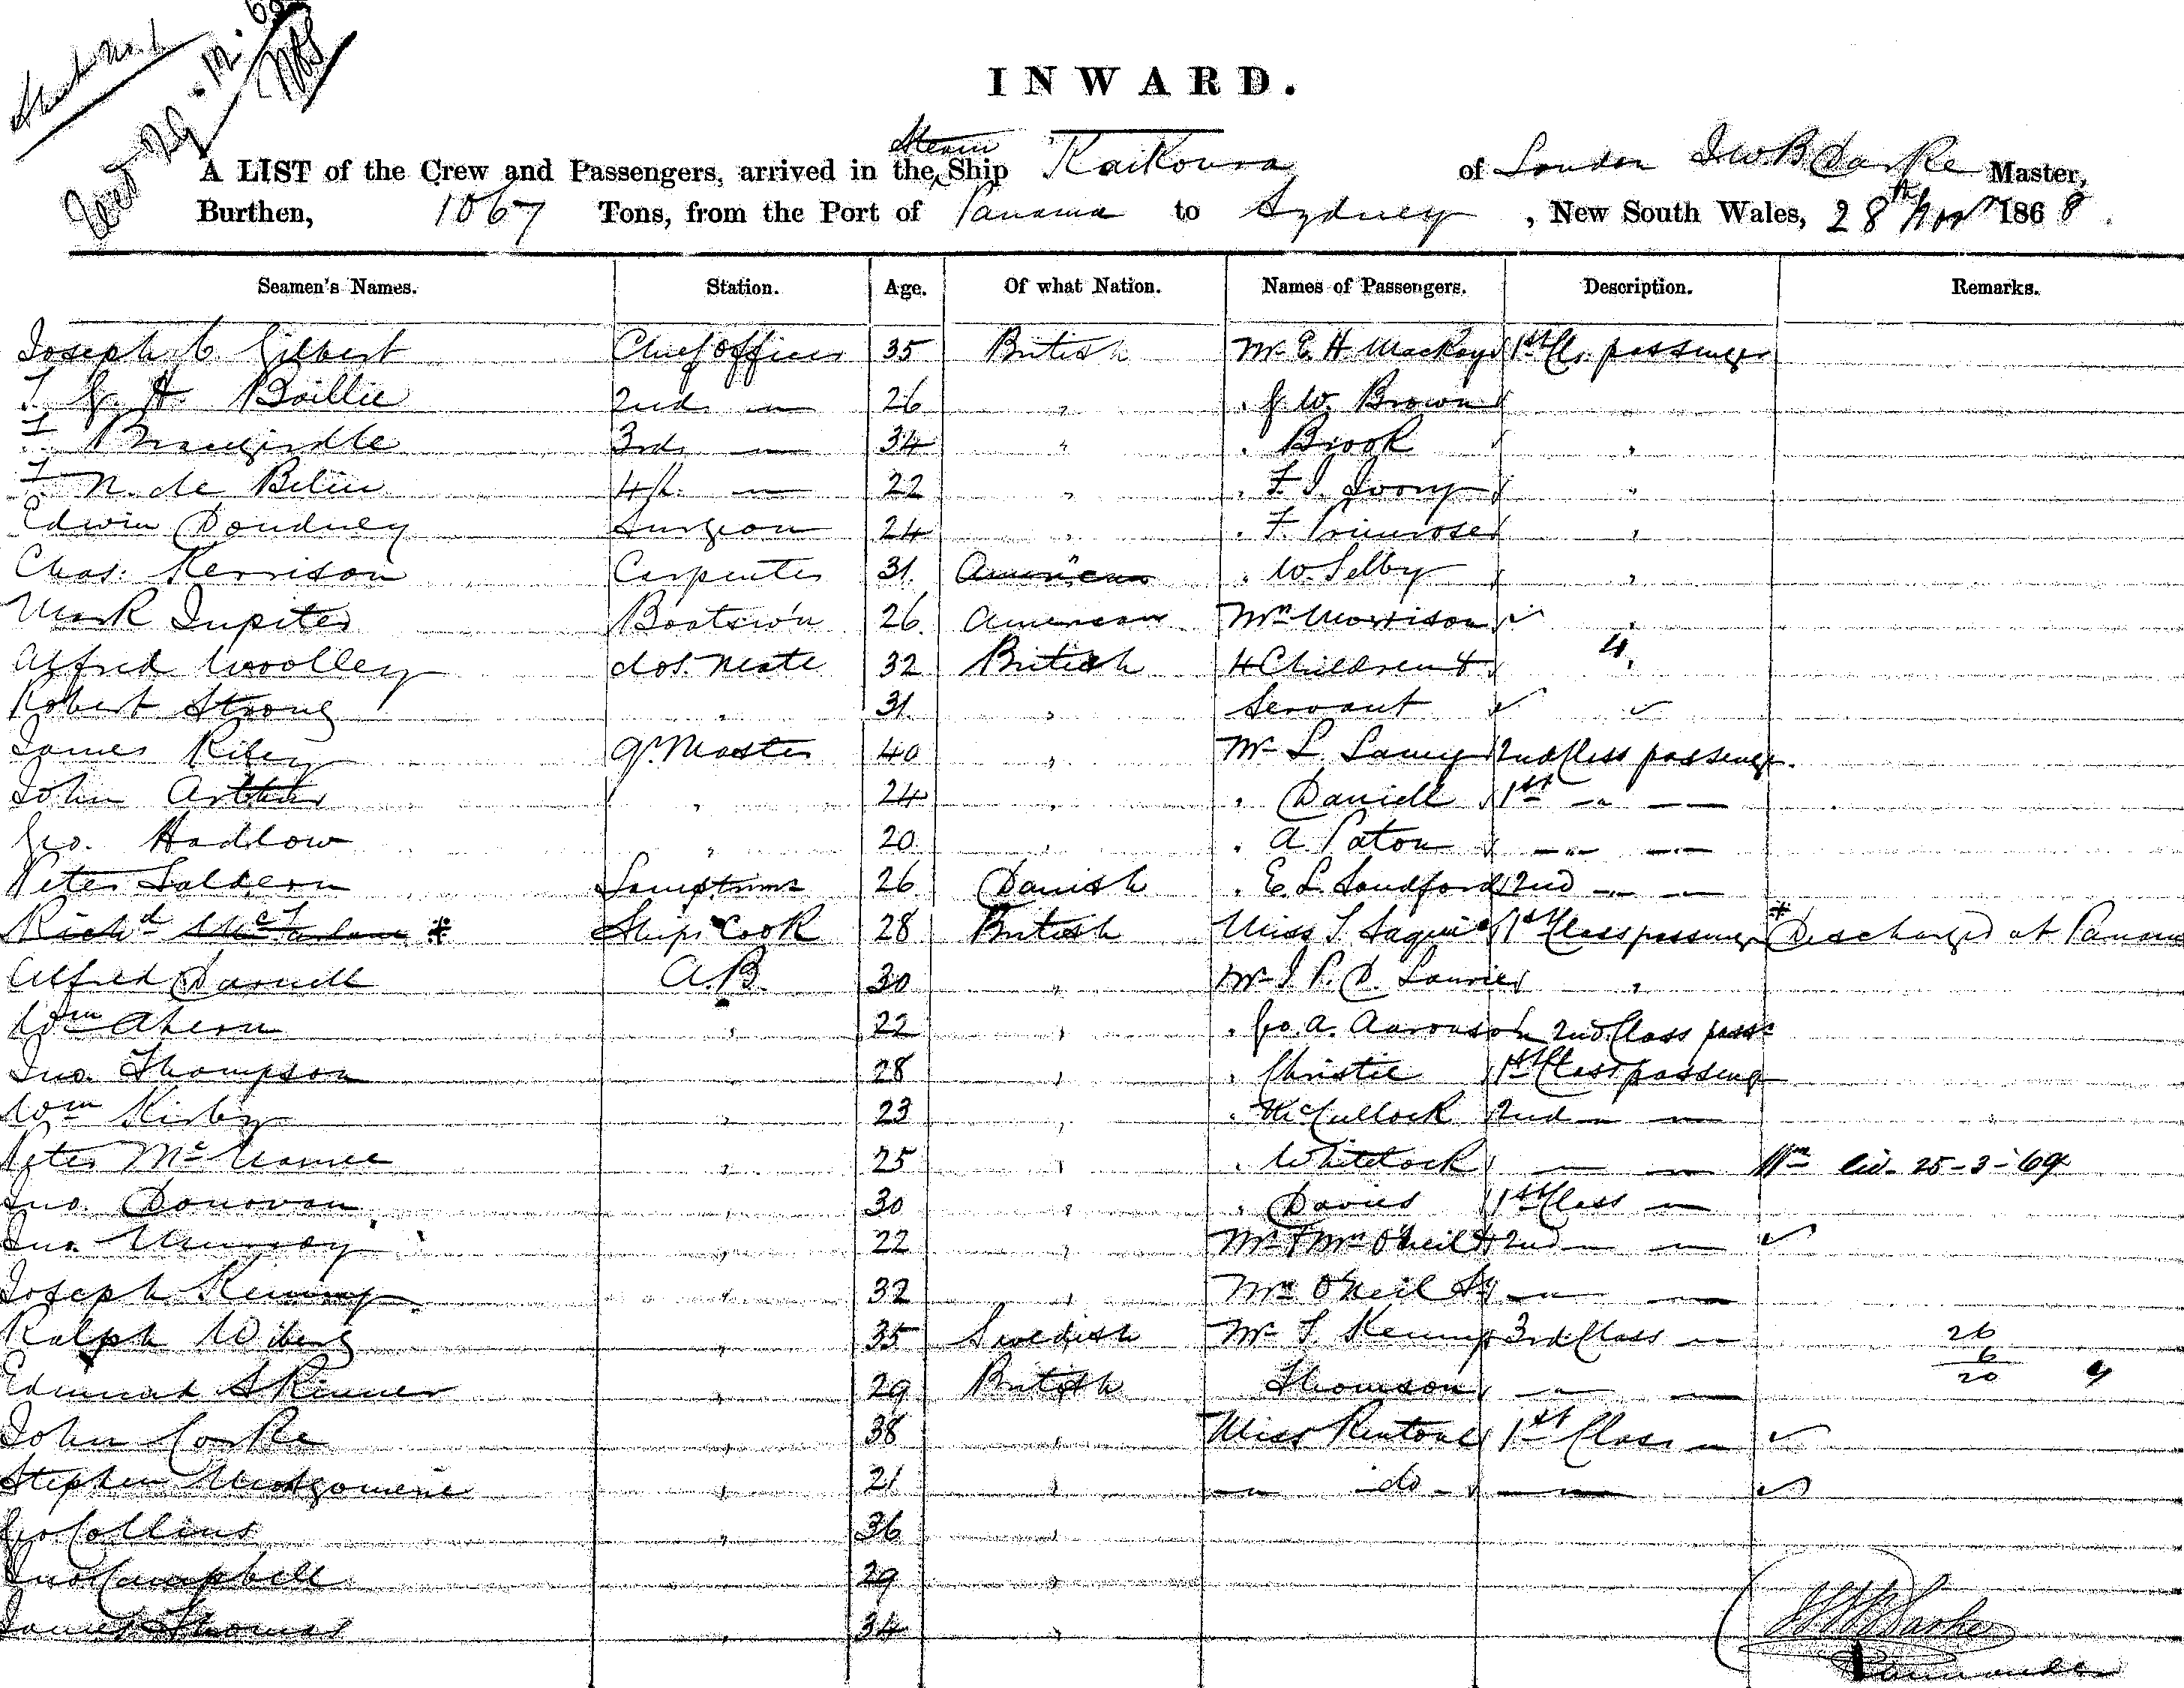 Sheet No. 1
INWARD.
A LIST of the Crew and Passengers, arrived in the Steam Ship Kaikoura of London Master,
Burthen, 1067 Tons, from the Port of Panama to Sydney, New South Wales, 28th Novr 1868.
Seamen's Names. Station. Age. Of what Nation. Names of Passengers. Description. Remarks.
Joseph C. Gilbert Chief Officer 35 British Mr E. H. Mackay 1st Cls. passenger
T. G. H. Baillie 2nd " 26 " " G. W. Brown "
F. Bracegirdle 3rd " 34 " " Brook "
F. N. de Belin 4th " 22 " " F. J. Ivory "
Edwin Doudney Surgeon 24 " " F. Primrose "
Chas. Kerrison Carpenter 31 American " " W. Selby "
Mark Jupiter Boatsw'n 26 American Mrs Morrison "
Alfred Woolley do's. Mate 32 British 4 Children & 4 "
Robert Strong " 31 " Servant
James Riley Qr. Master 40 " Mr L. 2nd Class passenger
John Arthur " 24 " " Daniell 1st " "
Geo. Hadlow " 20 " " A Paton " "
Peter Saldern Lamptrimr 26 Danish " E. L. Sandford 2nd " "
Richd McFarlane * Ships Cook 28 British Miss 1st Class passenger * Discharged at Panama
Alfred Darnell A.B. 30 " Mr J. P. D. Laurie "
Wm Ahern " 22 " " Geo. A. Aaronson 2nd Class passr
Jno. Thompson " 28 " " Christie 1st Class passeng
Wm Kirby " 23 " " McCullock 2nd " "
Peter McNamee " 25 " " Whitelock " " 25-3-69
Jno. Donovan " 30 " " Davies 1st Class "
Jno. Murray " 22 " Mr & Mrs O'Neil 2nd " "
Joseph Kemmp " 32 " Mrs O'Neil " "
Ralph Wiberg " 35 Swedish Mr T. Kemmp 3rd Class " 26
6
Edmund Skinner " 29 British Thomson " " 20
John Corke " 38 " Miss Rentone 1st Class "
Stephen Montgomerie " 21 " " do "
Geo Collins " 36 "
Jno Campbell " 29 "
James Thomas " 34 "
Commander